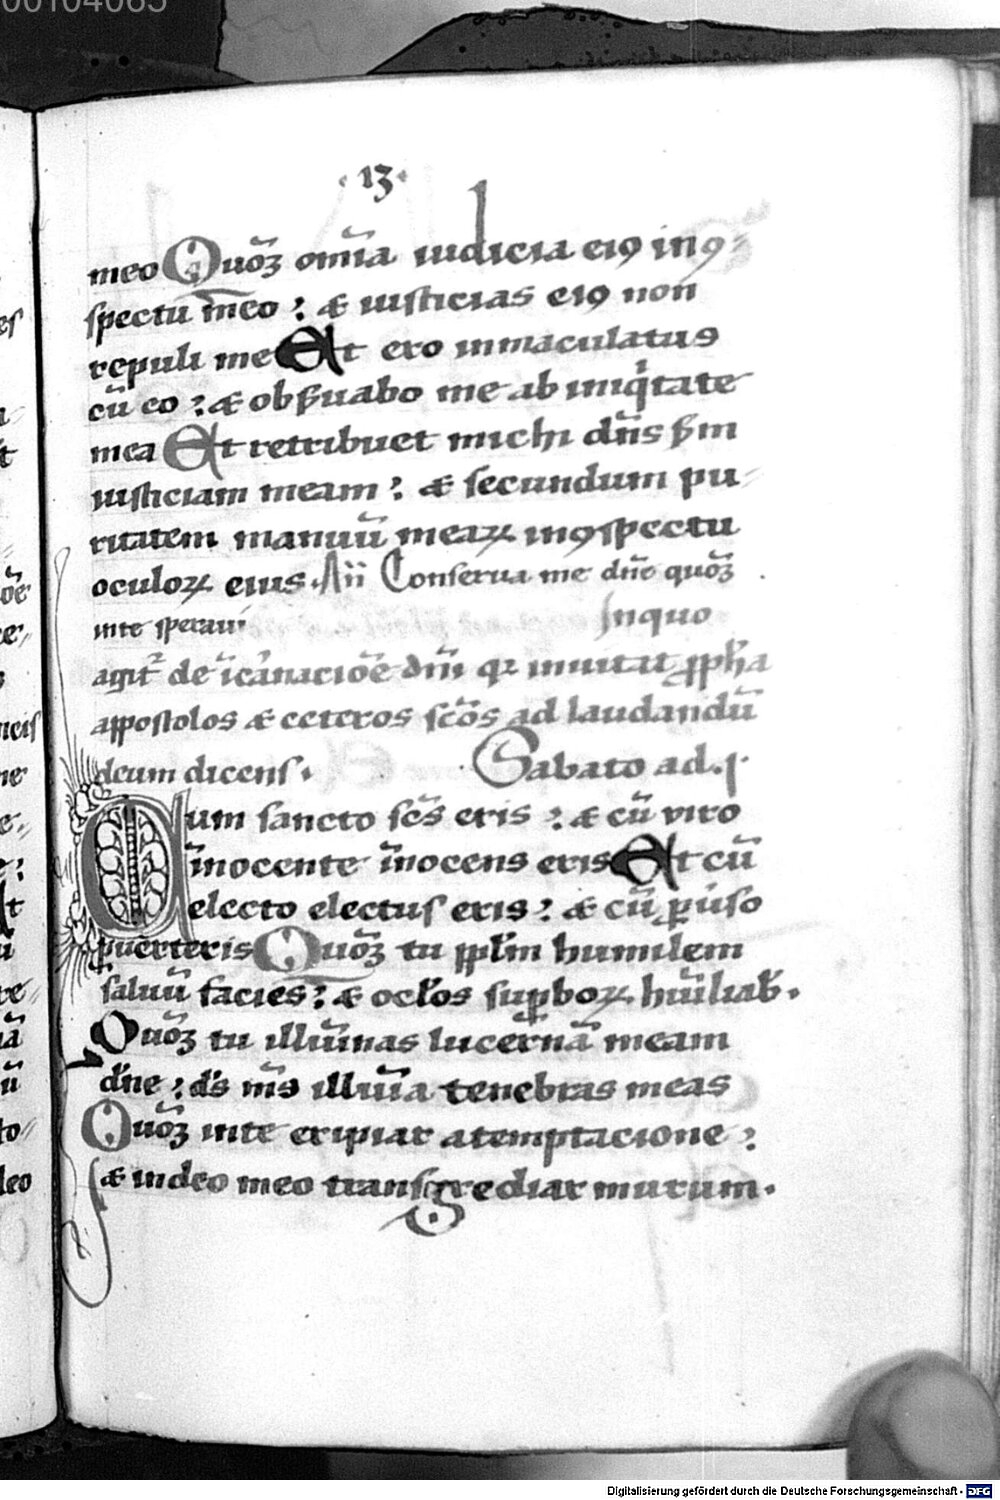 00104065
· 13 ·
meo Quoꝫ om̄ia iudicia eiꝰ in ꝯ-
spectu meo : & iusticias eiꝰ non
repuli me Et ero inmaculatus
cū eo : & obẜuabo me ab iniqͥtate
mea Et retribuet michi dn̄s ẜm
iusticiam meam : & secundum pu-
ritatem manuū meaꝝ in ꝯspectu
oculoꝝ eius. Aīi Conserua me dn̄e quoꝫ
in te speraui
In quo
agit᷑ de īcarnacio̅e dn̄i & inuitat ꝓph̄a
appostolos & ceteros sc̄os ad laudandū
deum dicens.
Sabato ad .j.
Cum sancto sc̄s eris : & cū viro
īnocente īnocens eris Et cū
electo electus eris : & cū ꝑu̓so
ꝑuerteris Quoꝫ tu ppl̄m humilem
saluū facies : & ocl̓os suꝑboꝝ hūiliab̓.
Quoꝫ tu illūinas lucernā meam
dn̄e : ds̄ ms̄ illūīa tenebras meas
Quoꝫ in te eripiar a temptacione :
& in deo meo transgrediar murum.
Digitalisierung gefördert durch die Deutsche Forschungsgemeinschaft - DFG